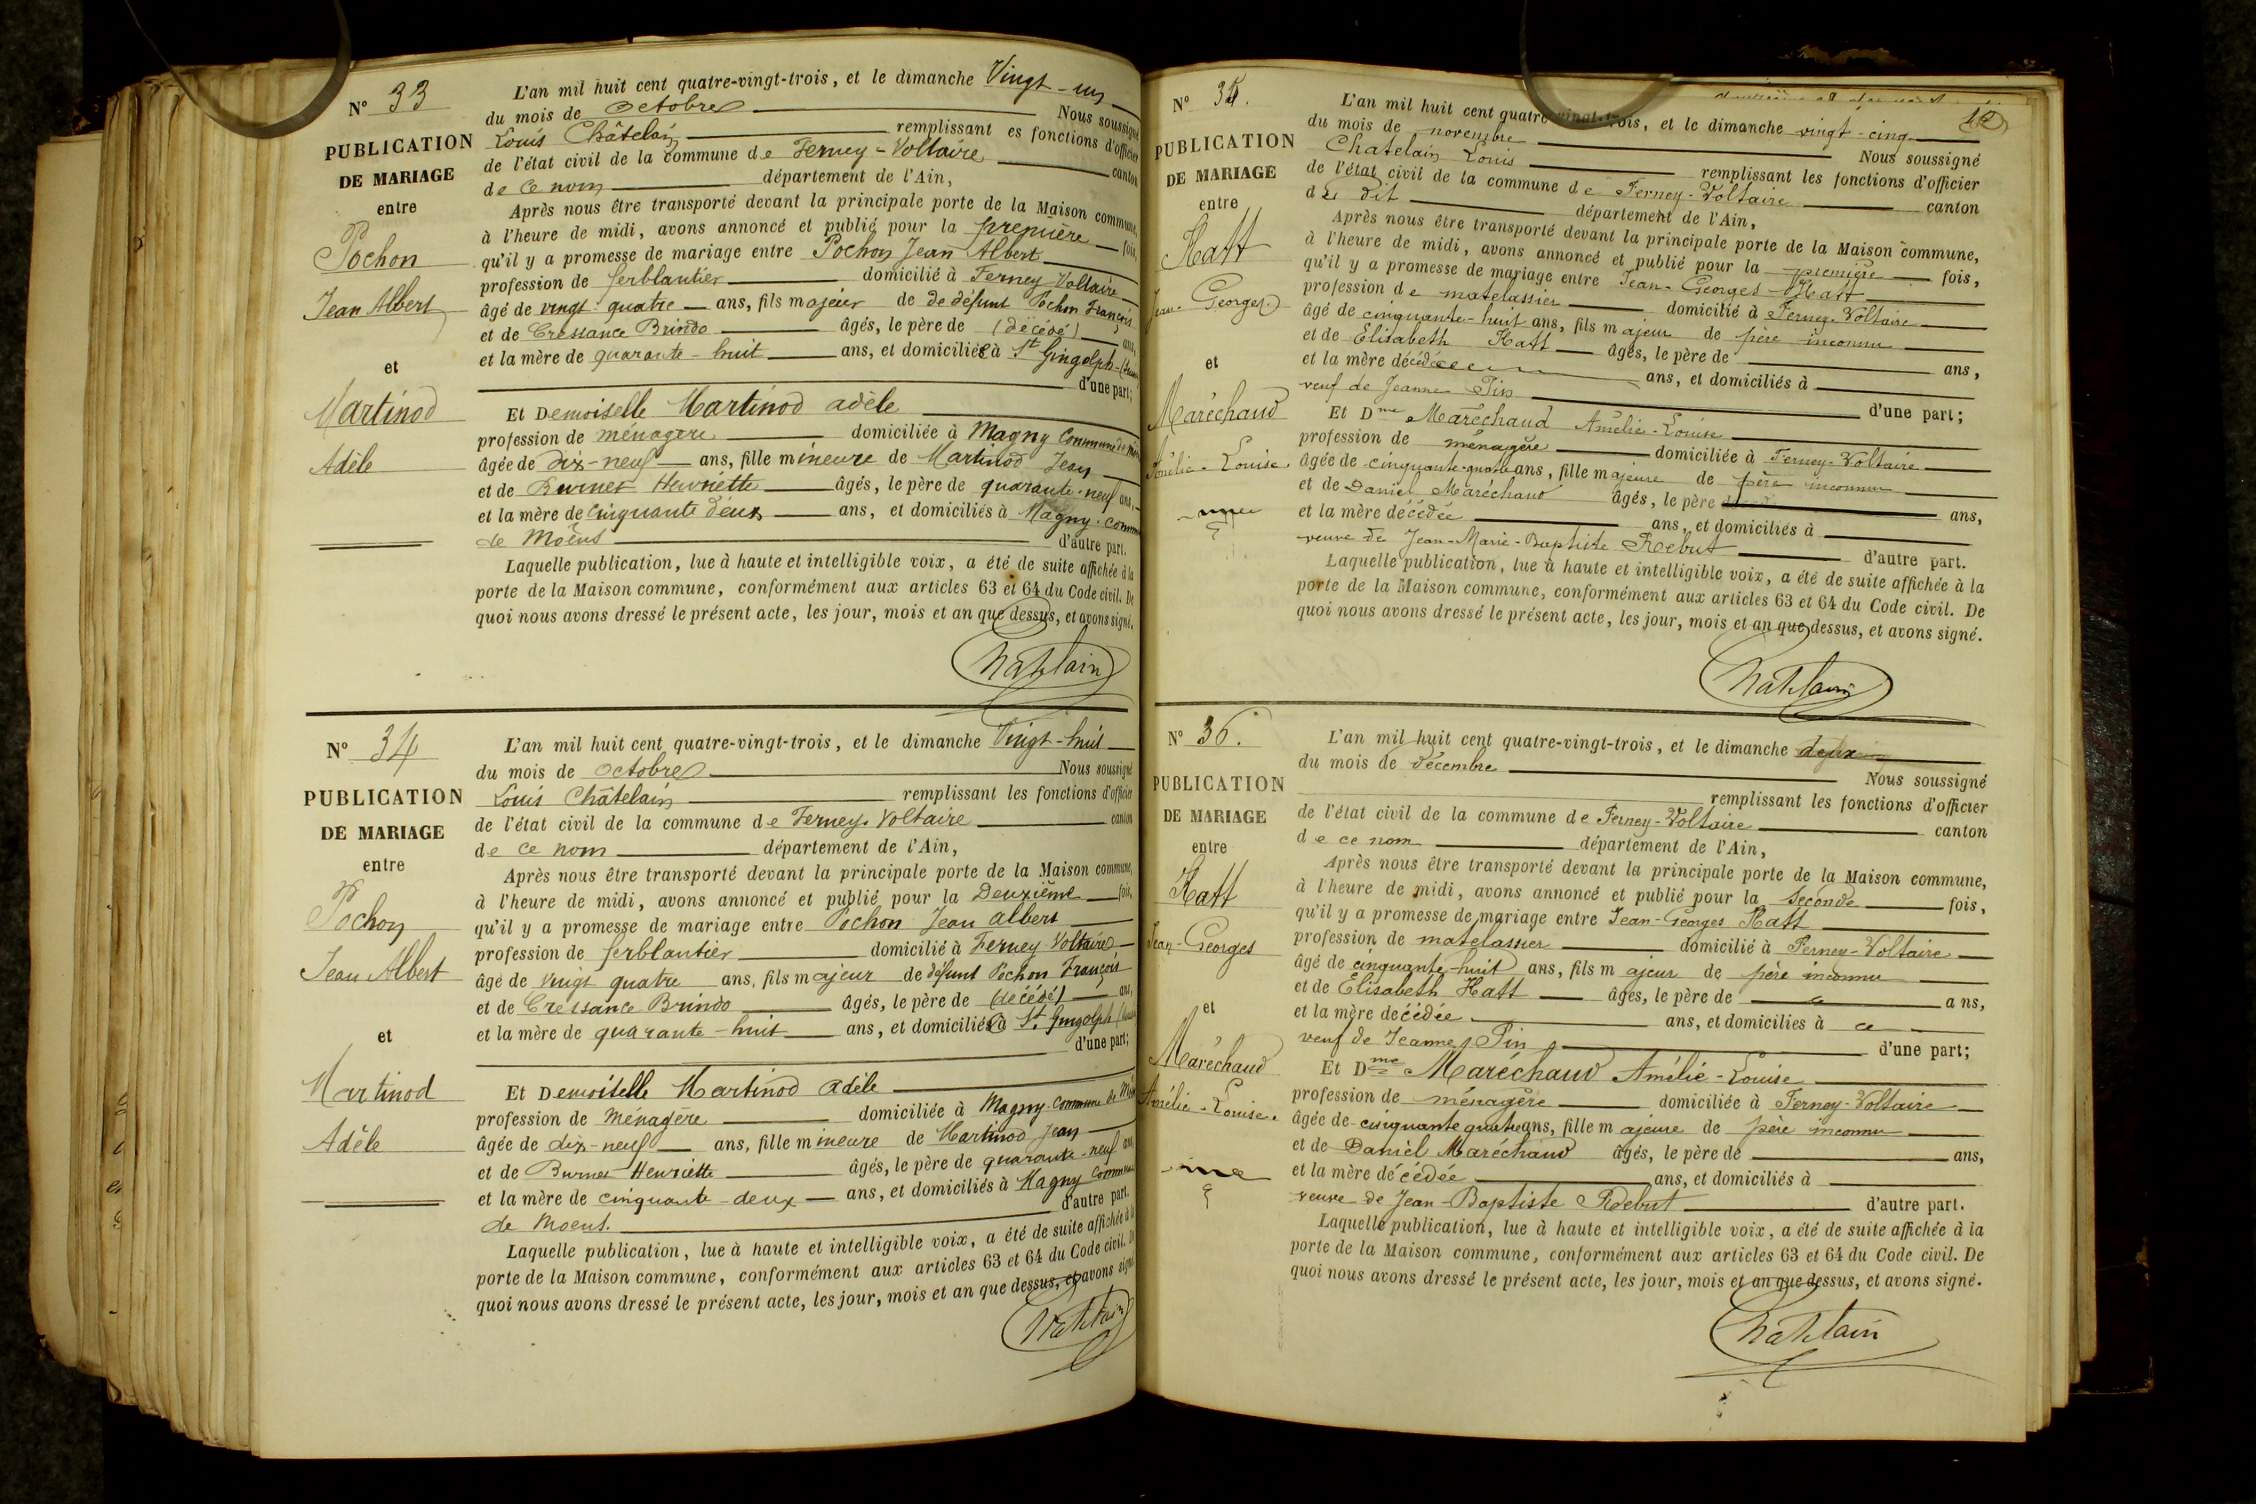 N° 33
PUBLICATION
DE MARIAGE
entre
Pochon
Jean Albert
et
Martinod
Adèle
L'an mil huit cent quatre-vingt-trois, et le dimanche Vingt-un
du mois de octobre Nous soussigné
Louis Châtelain remplissant es fonctions d'officier
de l'état civil de la commune de Ferney-Voltaire canton
de ce nom département de l'Ain,
Après nous être transporté devant la principale porte de la Maison commune,
à l'heure de midi, avons annoncé et publié pour la première fois,
qu'il y a promesse de mariage entre Pochon Jean Albert
profession de ferblantier domicilié à Ferney Voltaire
âgé de vingt-quatre ans, fils majeur de de défunt Pochon François
et de Cressance Brindo âgés, le père de (décédé) ans,
et la mère de quarante-huit ans, et domiciliés à St Gingolph
d'une part;
Et Demoiselle Martinod adèle
profession de ménagère domiciliée à Magny Commune de
âgée de dix-neuf ans, fille mineure de Martinod Jean
et de Burnet Henriette âgés, le père de quarante-neuf ans,
et la mère de cinquante deux ans, et domiciliés à Magny-commune
de Moëns d'autre part.
Laquelle publication, lue à haute et intelligible voix, a été de suite affichée à la
porte de la Maison commune, conformément aux articles 63 et 64 du Code civil. De
quoi nous avons dressé le présent acte, les jour, mois et an que dessus, et avons signé.
Chatelain
N° 34
PUBLICATION
DE MARIAGE
entre
Pochon
Jean Albert
et
Martinod
Adèle
L'an mil huit cent quatre-vingt-trois, et le dimanche Vingt-huit
du mois de octobre Nous soussigné
Louis Châtelain remplissant les fonctions d'officier
de l'état civil de la commune de Ferney-Voltaire canton
de ce nom département de l'Ain,
Après nous être transporté devant la principale porte de la Maison commune,
à l'heure de midi, avons annoncé et publié pour la Deuxième fois,
qu'il y a promesse de mariage entre Pochon Jean albert
profession de ferblantier domicilié à Ferney-Voltaire
âgé de vingt quatre ans, fils majeur de défunt Pochon François
et de Cressance Brindo âgés, le père de (décédé) ans,
et la mère de quarante-huit ans, et domiciliés à St. Gingolph
d'une part;
Et Demoiselle Martinod adèle
profession de Ménagère domiciliée à Magny Commune de
âgée de dix-neuf ans, fille mineure de Martinod Jean
et de Burnet Henriette âgés, le père de quarante-neuf ans
et la mère de cinquante-deux ans, et domiciliés à Magny Commune
de Moens. d'autre part.
Laquelle publication, lue à haute et intelligible voix, a été de suite affichée à la
porte de la Maison commune, conformément aux articles 63 et 64 du Code civil. De
quoi nous avons dressé le présent acte, les jour, mois et an que dessus, et avons signé
Chatelain
12
N° 35.
PUBLICATION
DE MARIAGE
entre
Hatt
Jean-Georges
et
Maréchaud
Amélie-Louise.
L'an mil huit cent quatre-vingt-trois, et le dimanche vingt-cinq
du mois de novembre Nous soussigné
Chatelain Louis remplissant les fonctions d'officier
de l'état civil de la commune de Ferney-Voltaire canton
du dit département de l'Ain,
Après nous être transporté devant la principale porte de la Maison commune,
à l'heure de midi, avons annoncé et publié pour la première fois,
qu'il y a promesse de mariage entre Jean-Georges Hatt
profession de matelassier domicilié à Ferney-Voltaire
âgé de cinquante-huit ans, fils majeur de père inconnu
et de Elisabeth Hatt âgés, le père de ans,
et la mère décédée ans, et domiciliés à
veuf de Jeanne Pin d'une part;
Et Dme Maréchaud Amélie-Louise
profession de ménagère domiciliée à Ferney-Voltaire
âgée de cinquante-quatre ans, fille majeure de père inconnu
et de Daniel Maréchaud âgés, le père ans,
et la mère décédée ans, et domiciliés à
veuve de Jean-Marie-Baptiste Rebut d'autre part.
Laquelle publication, lue à haute et intelligible voix, a été de suite affichée à la
porte de la Maison commune, conformément aux articles 63 et 64 du Code civil. De
quoi nous avons dressé le présent acte, les jour, mois et an que dessus, et avons signé.
Chatelain
N° 36.
PUBLICATION
DE MARIAGE
entre
Hatt
Jean-Georges
et
Maréchaud
Amélie-Louise.
L'an mil huit cent quatre-vingt-trois, et le dimanche deux
du mois de décembre Nous soussigné
remplissant les fonctions d'officier
de l'état civil de la commune de Ferney-Voltaire canton
de ce nom département de l'Ain,
Après nous être transporté devant la principale porte de la Maison commune,
à l'heure de midi, avons annoncé et publié pour la seconde fois,
qu'il y a promesse de mariage entre Jean-Georges Hatt
profession de matelassier domicilié à Ferney-Voltaire
âgé de cinquante-huit ans, fils majeur de père inconnu
et de Elisabeth Hatt âgés, le père de ans,
et la mère décédée ans, et domiciliés à
veuf de Jeanne Pin d'une part;
Et Dme Maréchaud Amélie-Louise
profession de ménagère domiciliée à Ferney-Voltaire
âgée de cinquante quatre ans, fille majeure de père inconnu
et de Daniel Maréchaud âgés, le père de ans,
et la mère décédée ans, et domiciliés à
veuve de Jean-Baptiste Rebut d'autre part.
Laquelle publication, lue à haute et intelligible voix, a été de suite affichée à la
porte de la Maison commune, conformément aux articles 63 et 64 du Code civil. De
quoi nous avons dressé le présent acte, les jour, mois et an que dessus, et avons signé.
Chatelain